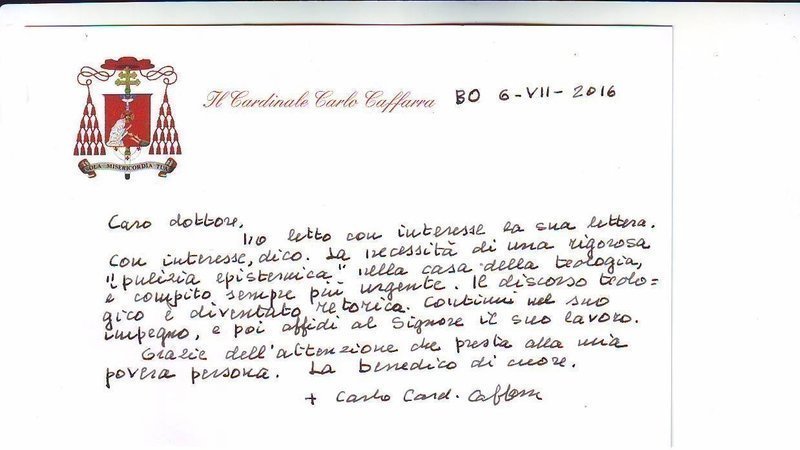 Il Cardinale Carlo Caffarra BO 6-VII-2016
SOLA MISERICORDIA TUA
Caro dottore,
ho letto con interesse la sua lettera.
Con interesse, dico. La necessità di una rigorosa
"pulizia epistemica" nella casa della teologia,
è compito sempre più urgente. Il discorso teolo=
gico è diventato retorica. Continui nel suo
impegno, e poi affidi al Signore il suo lavoro.
Grazie dell'attenzione che presta alla mia
povera persona. La benedico di cuore.
+ Carlo Card. Caffarra